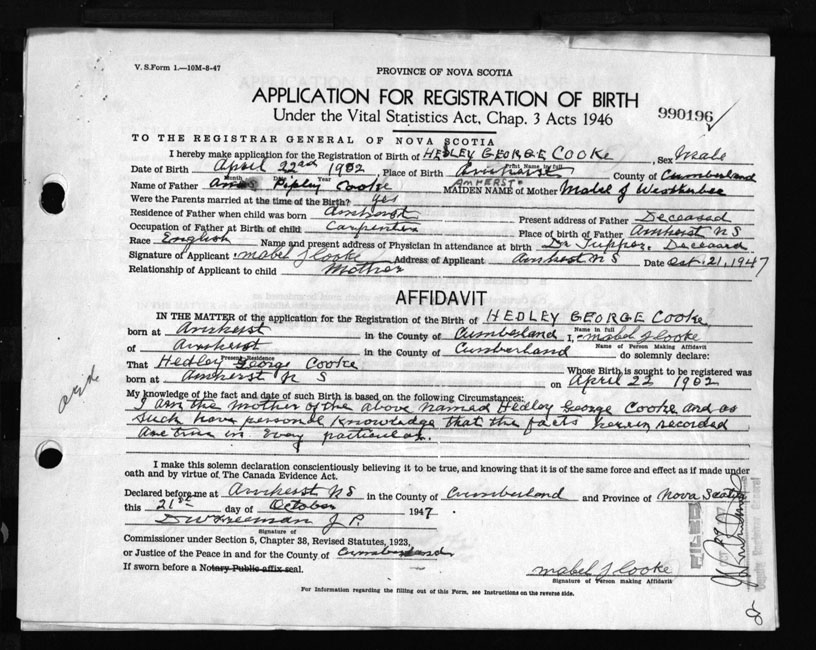 V. S.Form 1.—10M-8-47
PROVINCE OF NOVA SCOTIA
APPLICATION FOR REGISTRATION OF BIRTH
Under the Vital Statistics Act, Chap. 3 Acts 1946
990196
TO THE REGISTRAR GENERAL OF NOVA SCOTIA
I hereby make application for the Registration of Birth of HEDLEY GEORGE COOKE, Sex Male
Print Name in full
Date of Birth April 22nd 1902, Place of Birth Amherst County of Cumberland
Month Date Year AMHERST
Name of Father Amos Pipley Cooke MAIDEN NAME of Mother Mabel J Westkerbee
Were the Parents married at the time of the Birth? yes
Residence of Father when child was born Amherst Present address of Father Deceased
Occupation of Father at Birth of child Carpenter Place of birth of Father Amherst NS
Race English Name and present address of Physician in attendance at birth Dr Tupper. Deceased
Signature of Applicant Mabel J Cooke Address of Applicant Amherst NS Date Oct. 21, 1947
Relationship of Applicant to child Mother
AFFIDAVIT
IN THE MATTER of the application for the Registration of the Birth of HEDLEY GEORGE COOKE
Name in full
born at Amherst in the County of Cumberland I, Mabel J Cooke
Name of Person Making Affidavit
of Amherst in the County of Cumberland do solemnly declare:
Present Residence
That Hedley George Cooke Whose Birth is sought to be registered was
born at Amherst N S on April 22 1902
My knowledge of the fact and date of such Birth is based on the following Circumstances:
I am the mother of the above named Hedley George Cooke and as
such have personal knowledge that the facts herein recorded
are true in every particular.
I make this solemn declaration conscientiously believing it to be true, and knowing that it is of the same force and effect as if made under
oath and by virtue of The Canada Evidence Act.
Declared before me at Amherst NS in the County of Cumberland and Province of Nova Scotia
this 21st day of October 1947
D W Freeman J.P.
Signature of
Commissioner under Section 5, Chapter 38, Revised Statutes, 1923,
or Justice of the Peace in and for the County of Cumberland
If sworn before a Notary Public affix seal.
Mabel J Cooke
Signature of Person making Affidavit
For Information regarding the filling out of this Form, see Instructions on the reverse side.
FILED